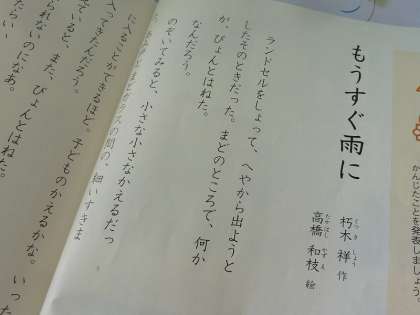 かんじたことを発表しましょう。
もうすぐ雨に
朽木 祥 作
くつき しょう
高橋 和枝 絵
たかはし かずえ
ランドセルをしょって、へやから出ようと
したそのときだった。まどのところで、何か
が、ぴょんとはねた。
なんだろう。
のぞいてみると、小さな小さなかえるだっ
ガラスの間の、細いすきま
に入ることができるほど。子どものかえるかな。
入ってきたんだろう。
ていると、また、ぴょんとはねた。
られないのになあ。
いっ